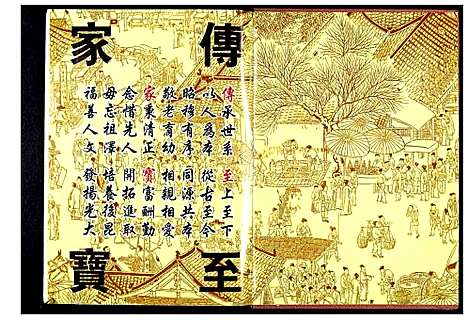 傳家至寶
傳承世系 至上至下
以人為本 從古至今
昭穆有序 同源共本
敬老有幼 相親相愛
家秉清正 寶富酬勤
念惜先人 開拓進取
毋忘祖澤 培養後昆
福善人文 發揚光大